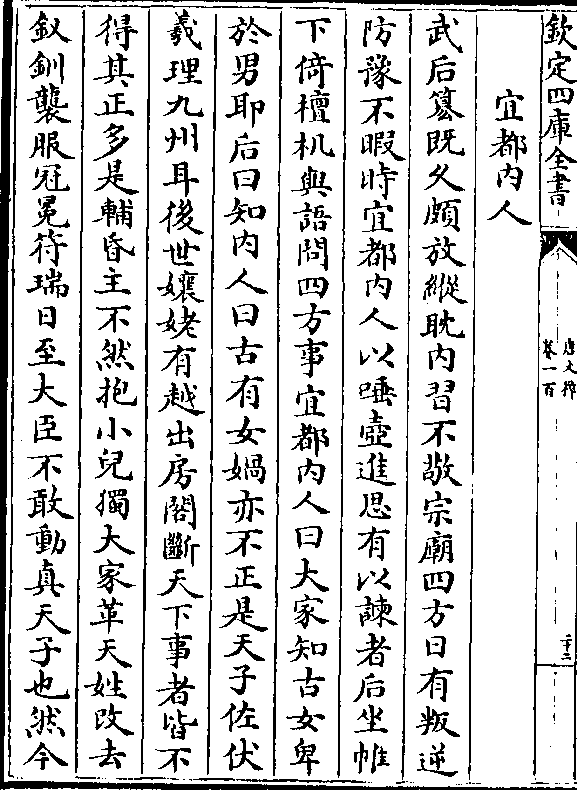 欽定四庫全書
唐文粹
卷一百
二十二
宜都内人
武后簒既久頗放縱耽内習不敬宗廟四方日有叛逆
防豫不暇時宜都内人以唾壺進思有以諫者后坐帷
下倚檀机與語問四方事宜都内人曰大家知古女卑
於男耶后曰知内人曰古有女媧亦不正是天子佐伏
羲理九州耳後世孃姥有越出房閤斷天下事者皆不
得其正多是輔昏主不然抱小兒獨大家革天姓改去
釵釧襲服冠冕符瑞日至大臣不敢動真天子也然今